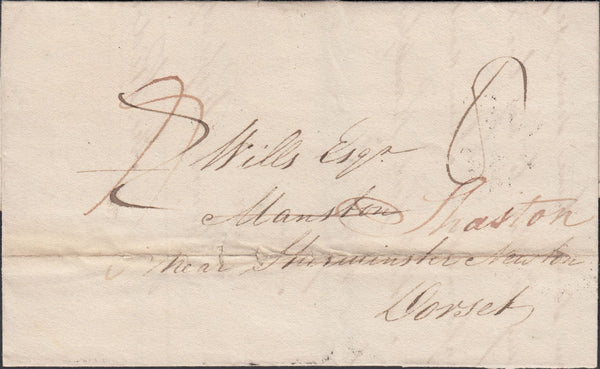 Wills Esqr 8
Manston Shaston
near Sturminster Newton
Dorset